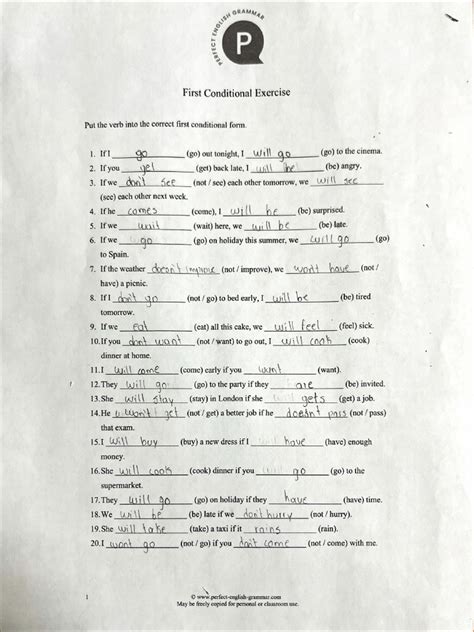 PERFECT ENGLISH GRAMMAR
P
First Conditional Exercise
Put the verb into the correct first conditional form.
1. If I go (go) out tonight, I will go (go) to the cinema.
2. If you get (get) back late, I will be (be) angry.
3. If we dont see (not / see) each other tomorrow, we will see
(see) each other next week.
4. If he comes (come), I will be (be) surprised.
5. If we wait (wait) here, we will be (be) late.
6. If we go (go) on holiday this summer, we will go (go)
to Spain.
7. If the weather doesn't improve (not / improve), we won't have (not /
have) a picnic.
8. If I don't go (not / go) to bed early, I will be (be) tired
tomorrow.
9. If we eat (eat) all this cake, we will feel (feel) sick.
10. If you dont want (not / want) to go out, I will cook (cook)
dinner at home.
11. I will come (come) early if you want (want).
12. They will go (go) to the party if they are (be) invited.
13. She will stay (stay) in London if she gets (get) a job.
14. He won't get (not / get) a better job if he doesn't pass (not / pass)
that exam.
15. I will buy (buy) a new dress if I have (have) enough
money.
16. She will cook (cook) dinner if you go (go) to the
supermarket.
17. They will go (go) on holiday if they have (have) time.
18. We will be (be) late if we don't hurry (not / hurry).
19. She will take (take) a taxi if it rains (rain).
20. I wont go (not / go) if you dont come (not / come) with me.
1
© www.perfect-english-grammar.com
May be freely copied for personal or classroom use.